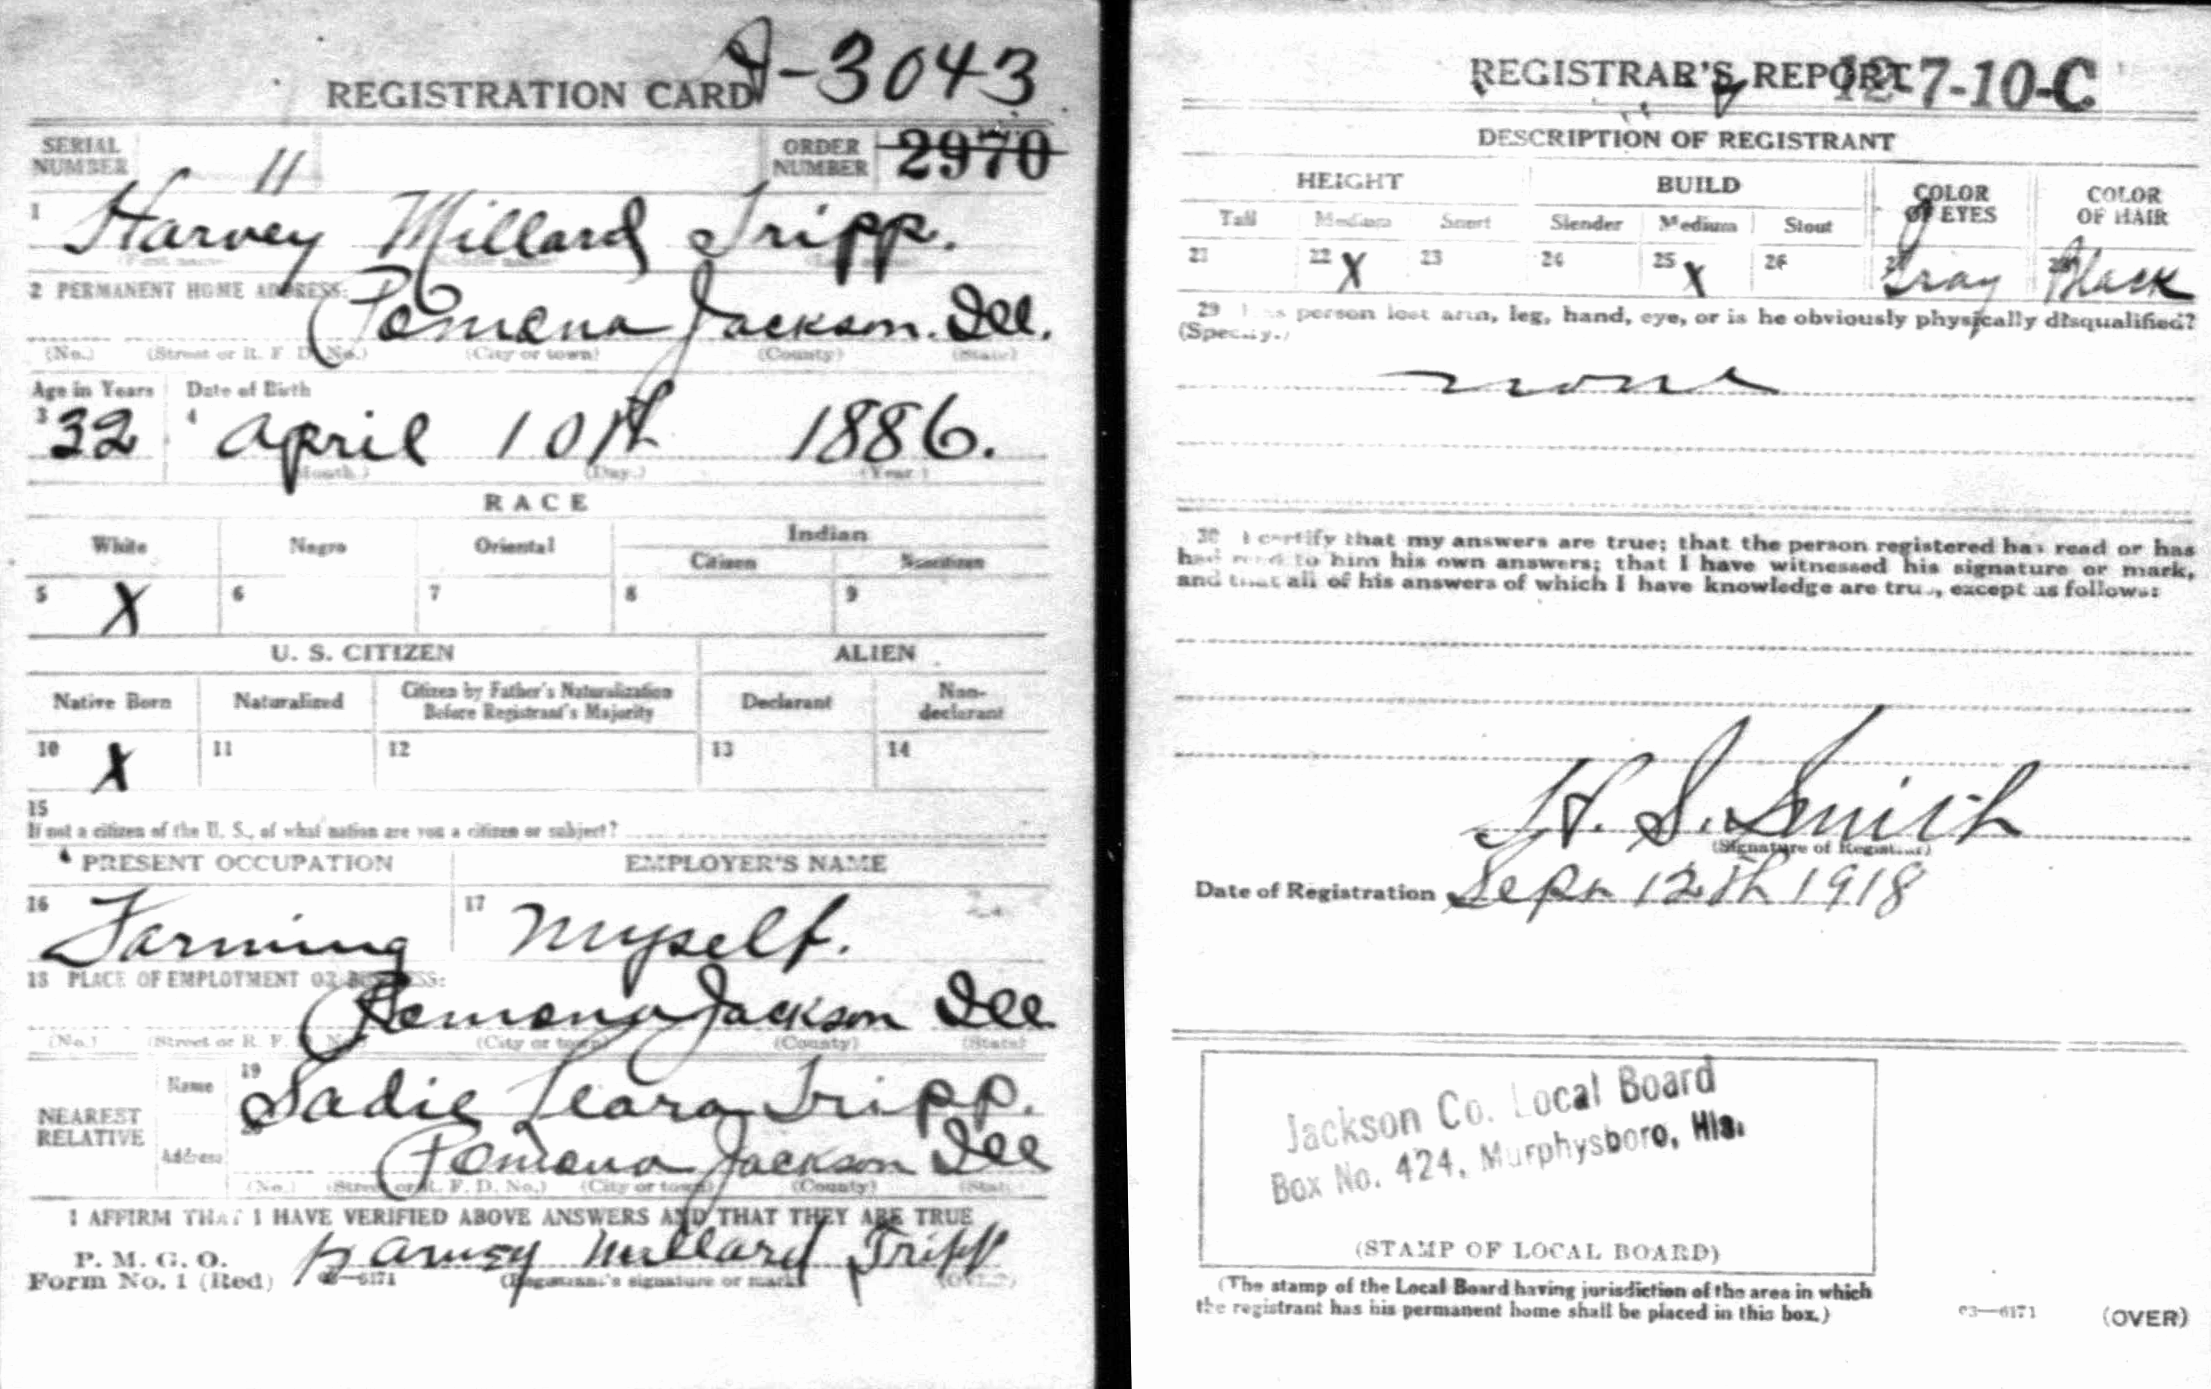 REGISTRATION CARD
-3043
SERIAL NUMBER 11
ORDER NUMBER 2970
1 Harvey Millard Tripp.
(Last name)
2 PERMANENT HOME ADDRESS:
Pomona Jackson. Ill.
(No.) (Street or R. F. D. No.) (City or town) (County) (State)
Age in Years Date of Birth
3 32 4 April 10th 1886.
(Month.) (Day.) (Year.)
RACE
White Negro Oriental Indian
Citizen Noncitizen
5 X 6 7 8 9
U. S. CITIZEN ALIEN
Native Born Naturalized Citizen by Father's Naturalization Before Registrant's Majority Declarant Non-declarant
10 X 11 12 13 14
15
If not a citizen of the U. S., of what nation are you a citizen or subject?
PRESENT OCCUPATION EMPLOYER'S NAME
16 Farming 17 Myself.
18 PLACE OF EMPLOYMENT OR BUSINESS:
Pomona Jackson Ill
(No.) (Street or R. F. D. No.) (City or town) (County) (State)
NEAREST RELATIVE
Name 19 Sadie Tripp.
Address 20 Pomona Jackson Ill
(No.) (Street or R. F. D. No.) (City or town) (County) (State)
I AFFIRM THAT I HAVE VERIFIED ABOVE ANSWERS AND THAT THEY ARE TRUE
P. M. G. O.
Form No. 1 (Red) Harvey Millard Tripp
(Registrant's signature or mark) (OVER)
REGISTRAR'S REPORT
12-7-10-C
DESCRIPTION OF REGISTRANT
HEIGHT BUILD COLOR OF EYES COLOR OF HAIR
Tall Medium Short Slender Medium Stout
21 22 X 23 24 25 X 26 Gray Black
29 Has person lost arm, leg, hand, eye, or is he obviously physically disqualified?
(Specify.)
none
30 I certify that my answers are true; that the person registered has read or has
had read to him his own answers; that I have witnessed his signature or mark,
and that all of his answers of which I have knowledge are true, except as follows:
H. S. Smith
(Signature of Registrar)
Date of Registration Sept 12th 1918
Jackson Co. Local Board
Box No. 424, Murphysboro, Ills.
(STAMP OF LOCAL BOARD)
(The stamp of the Local Board having jurisdiction of the area in which
the registrant has his permanent home shall be placed in this box.)
03—6171 (OVER)